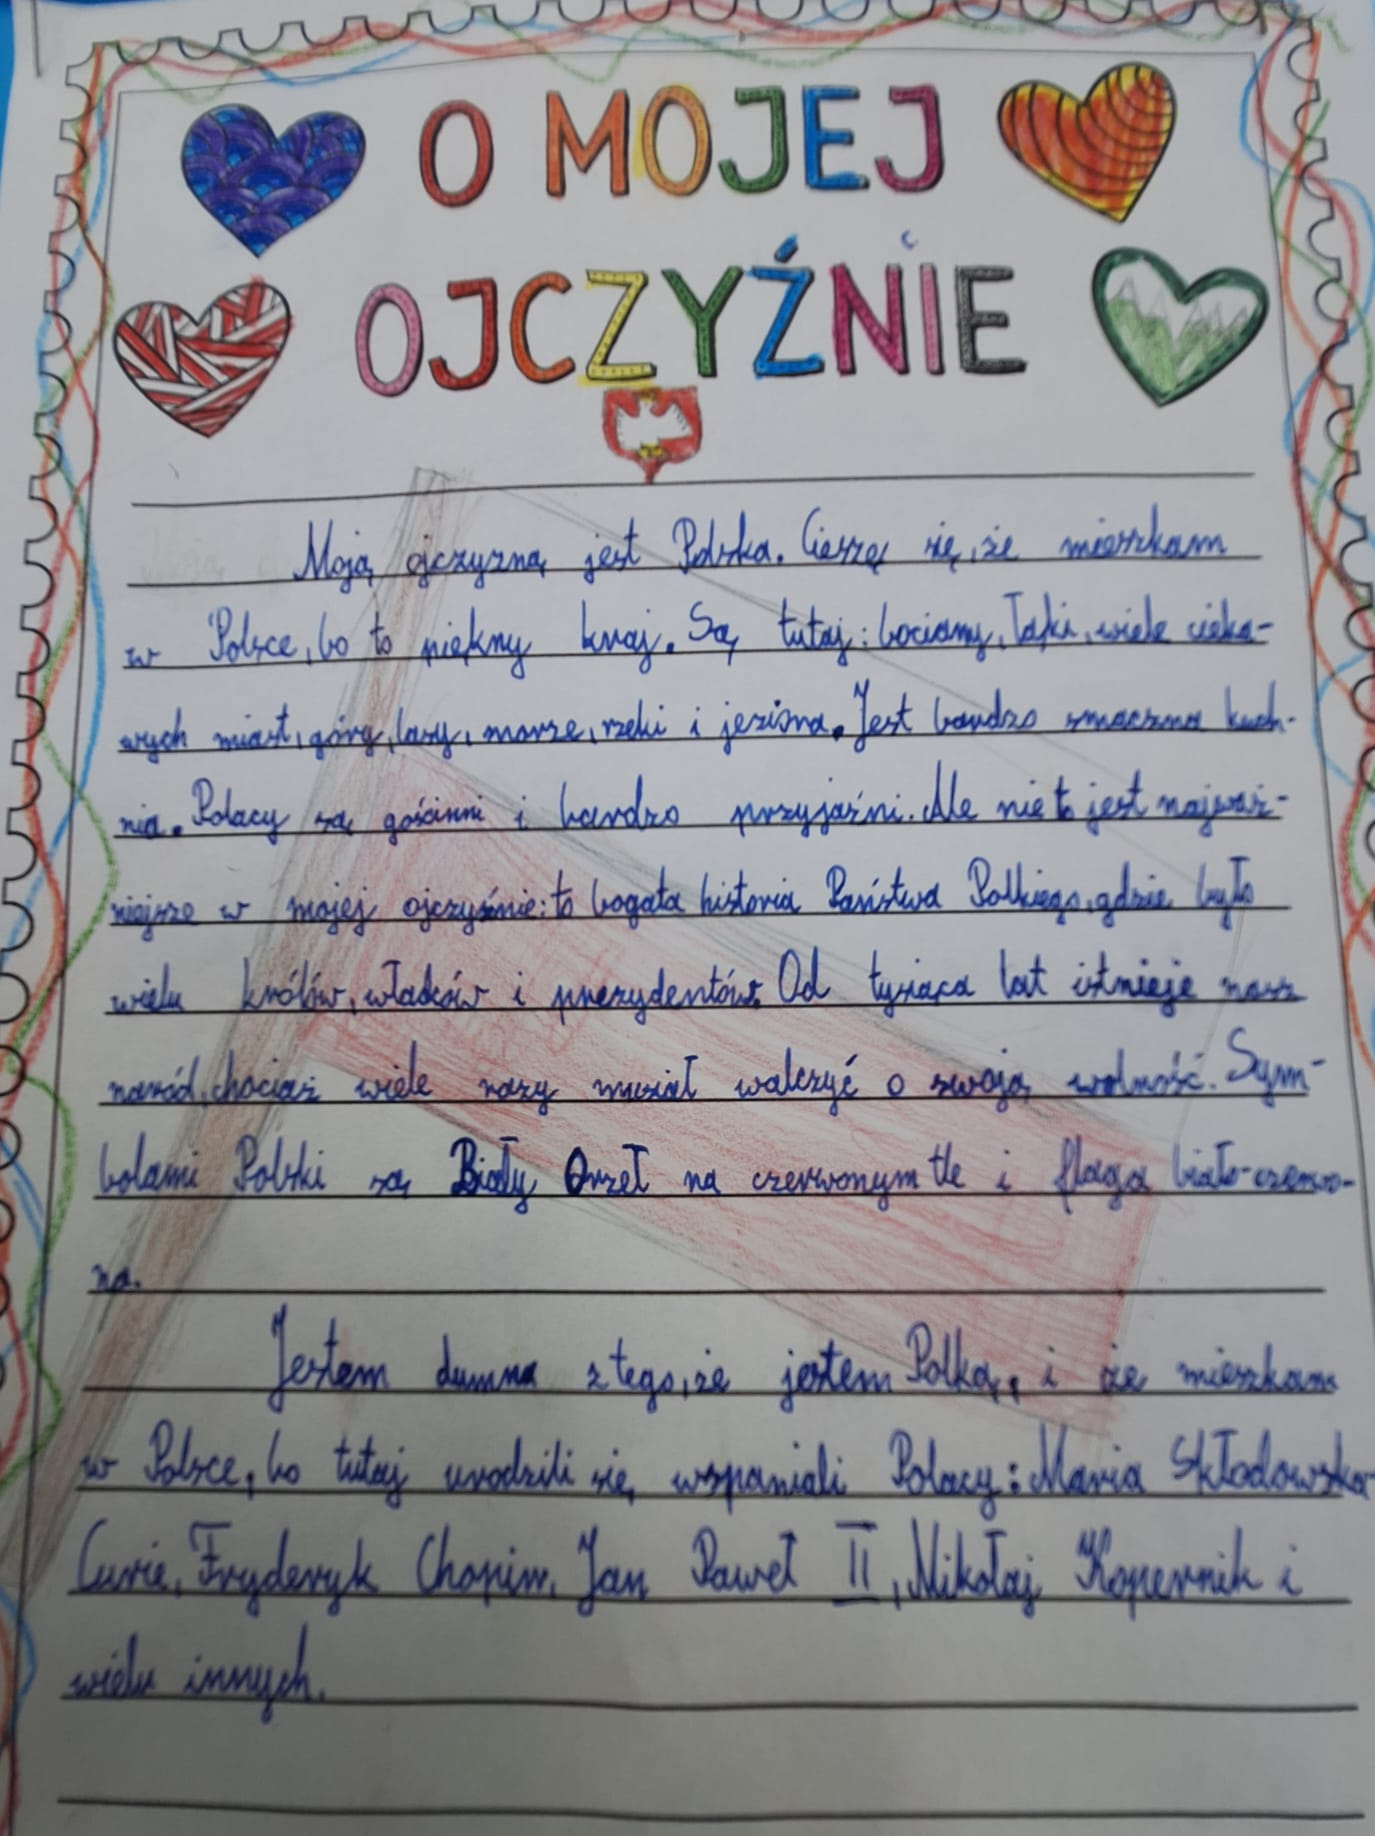 O MOJEJ
OJCZYŹNIE
Moją ojczyzną jest Polska. Cieszę się, że mieszkam
w Polsce, bo to piękny kraj. Są tutaj: bociany, łąki, wiele cieka-
wych miast, góry, lasy, morze, rzeki i jeziora. Jest bardzo smaczna kuch-
nia. Polacy są gościnni i bardzo przyjaźni. Ale nie to jest najważ-
niejsze w mojej ojczyźnie: to bogata historia Państwa Polkiego, gdzie było
wielu królów, władców i prezydentów. Od tysiąca lat istnieje nasz
naród, chociaż wiele razy musiał walczyć o swoją wolność. Sym-
bolami Polski są Biały Orzeł na czerwonym tle i flaga biało-czerwo-
na.
Jestem dumna z tego, że jestem Polką, i że mieszkam
w Polsce, bo tutaj urodzili się wspaniali Polacy: Maria Skłodowska-
Curie, Fryderyk Chopin, Jan Paweł II, Mikołaj Kopernik i
wielu innych.